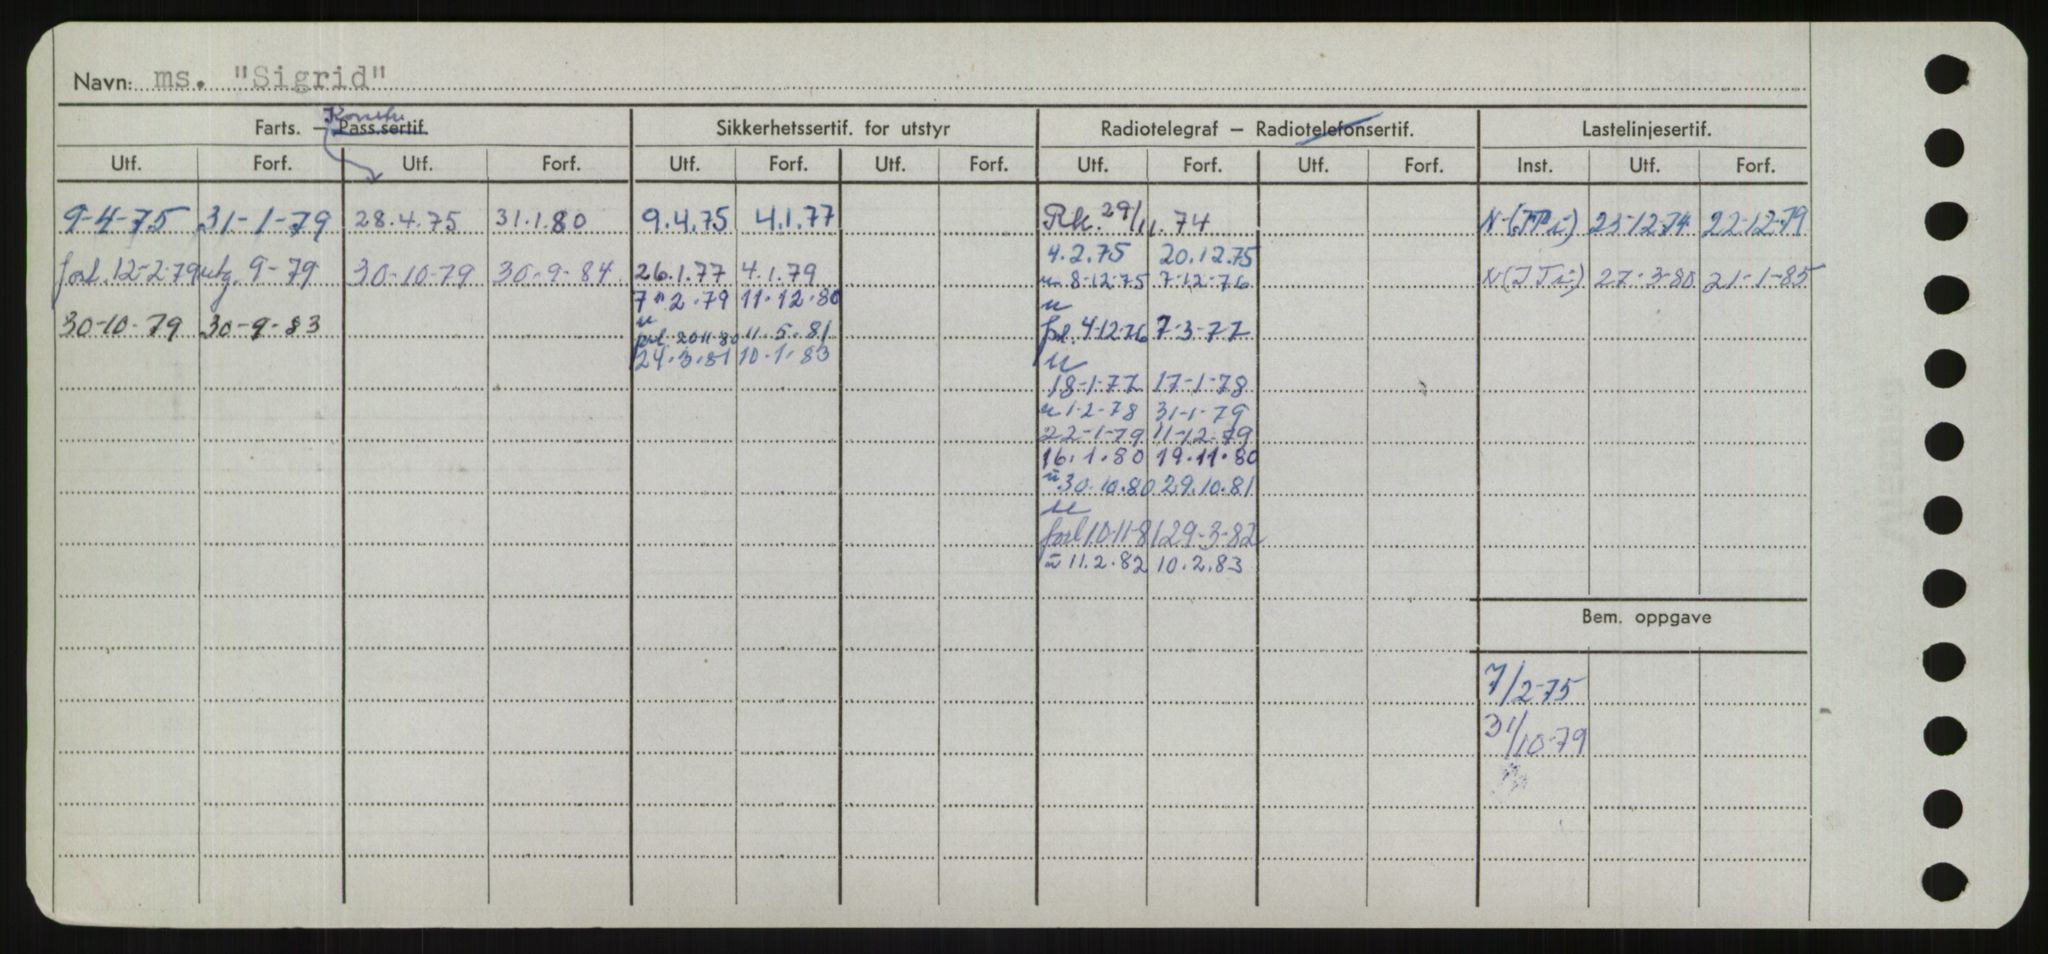 Navn: ms. "Sigrid"
Farts. – Konstr. Pass.sertif. Sikkerhetssertif. for utstyr Radiotelegraf – Radiotelefonsertif. Lastelinjesertif.
Utf. Forf. Utf. Forf. Utf. Forf. Utf. Forf. Utf. Forf. Utf. Forf. Inst. Utf. Forf.
9-4-75 31-1-79 28.4.75 31.1.80 9.4.75 4.1.77 Rk. 29/11.74 23-12-74 22-12-79
4.2.75 20.12.75
forl. 12-2-79 utg. 9-79 30-10-79 30-9-84 26.1.77 4.1.79 u 8-12-75 7-12-76 27-3-80 21-1-85
7.2.79 11.12.80 u
30-10-79 30-9-83 u forl. 20-11-80 11.5.81 forl. 4-12-76 7-3-77
24.3.81 10.1.83 u
18-1-77 17-1-78
u 1-2-78 31-1-79
22-1-79 11-12-79
16.1.80 19.11.80
u 30.10.80 29.10.81
u
forl 10-11-81 29-3-82
u 11.2.82 10.2.83
Bem. oppgave
7/2-75
31/10-79